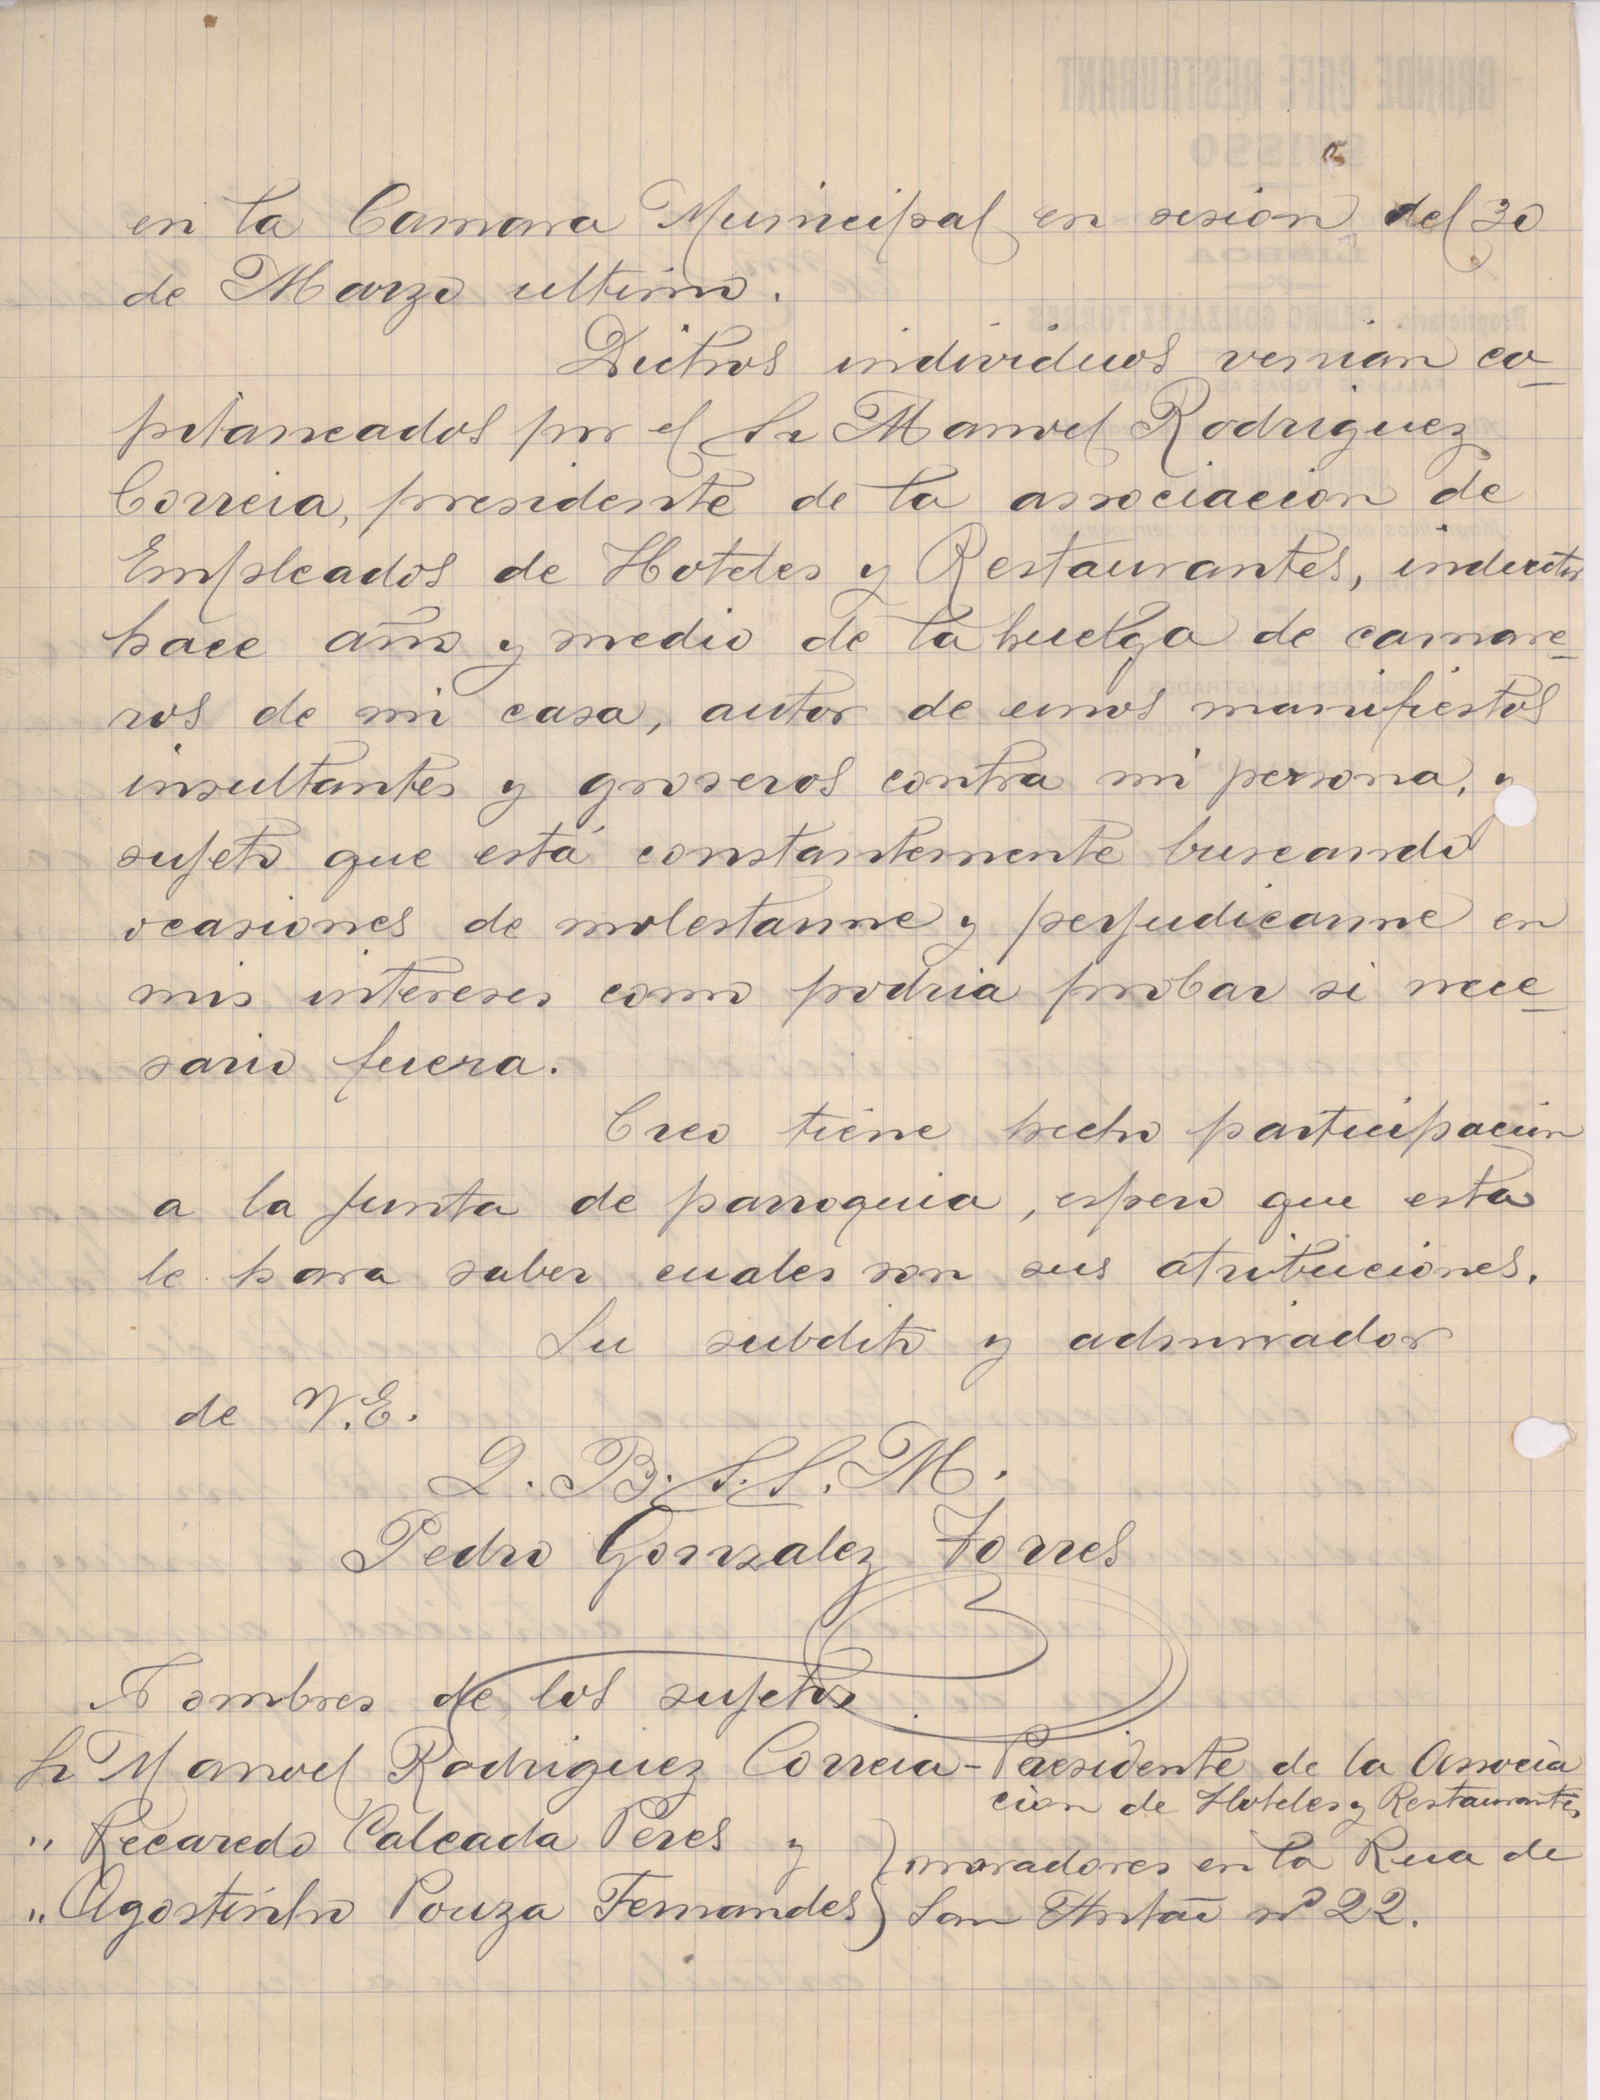 en la Camara Municipal en sesion del 30
de Marzo ultimo.
Dichos individuos venian ca-
pitaneados por el Sr Manoel Rodriguez
Correia, presidente de la associacion de
Empleados de Hoteles y Restaurantes,
hace año y medio de la huelga de camare-
ros de mi casa, autor de unos manifiestos
insultantes y groseros contra mi persona, y
sujeto que está constantemente buscando
ocasiones de molestarme y perjudicarme en
mis intereses como podria probar si nece-
sario fuera.
Creo tiene hecho participacion
a la Junta de parroquia, espero que esta
le hara saber cuales son sus atribuciones.
Su subdito y admirador
de V.E.
Q. B. S. S. M.
Pedro Gonzalez Torres
Nombres de los sujetos
Sr Manoel Rodriguez Correia - Presidente de la Associa
cion de Hoteles y Restaurantes
" Recaredo Calcada Peres y
" Agostinho Pouza Fernandes
moradores en la Rua de
San Antaõ nº 22.
GRANDE CAFÉ RESTAURANT
SUISSO
LISBOA
Proprietario, PEDRO GONZALEZ TORRES